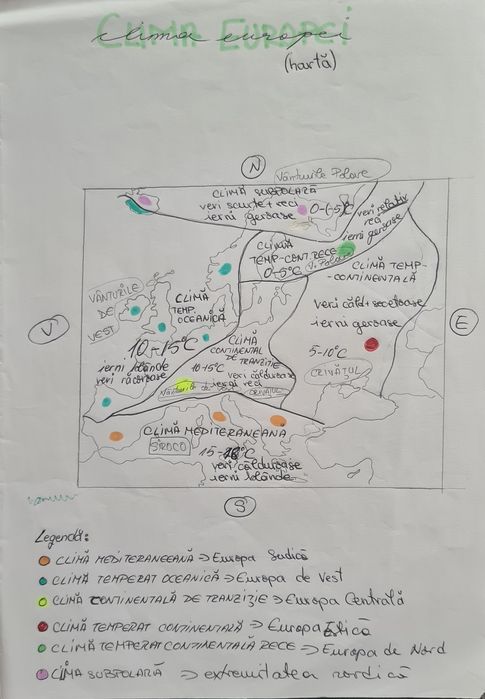 CLIMA EUROPEI
clima europei
(hartă)
N
Vânturile Polare
CLIMĂ SUBPOLARĂ
veri scurte+reci
ierni geroase
0-(-5°C)
veri relativ
reci
ierni geroase
CLIMĂ
TEMP-CONT.RECE
0-5°C
V. Polare
CLIMĂ TEMP-
CONTINENTALĂ
veri cald+secetoase
ierni geroase
5-10°C
CRIVĂȚUL
VÂNTURILE
DE
VEST
V
E
CLIMĂ
TEMP.
OCEANICĂ
10-15°C
ierni blânde
veri răcoroase
CLIMĂ
CONTINENTAL
DE TRANZIȚIE
10+5°C
veri călduroase
ierni reci
Vânturile de
CRIVĂȚUL
CLIMĂ MEDITERANEANĂ
SIROCO
15-18°C
veri călduroase
ierni blânde
S
Legendă:
CLIMĂ MEDITERANEEANĂ => Europa Sudică
CLIMĂ TEMPERAT OCEANICĂ => Europa de Vest
CLIMĂ CONTINENTALĂ DE TRANZIȚIE => Europa Centrală
CLIMĂ TEMPERAT CONTINENTALĂ => Europa Estică
CLIMĂ TEMPERAT CONTINENTALĂ RECE => Europa de Nord
CLIMĂ SUBPOLARĂ => extremitatea nordică